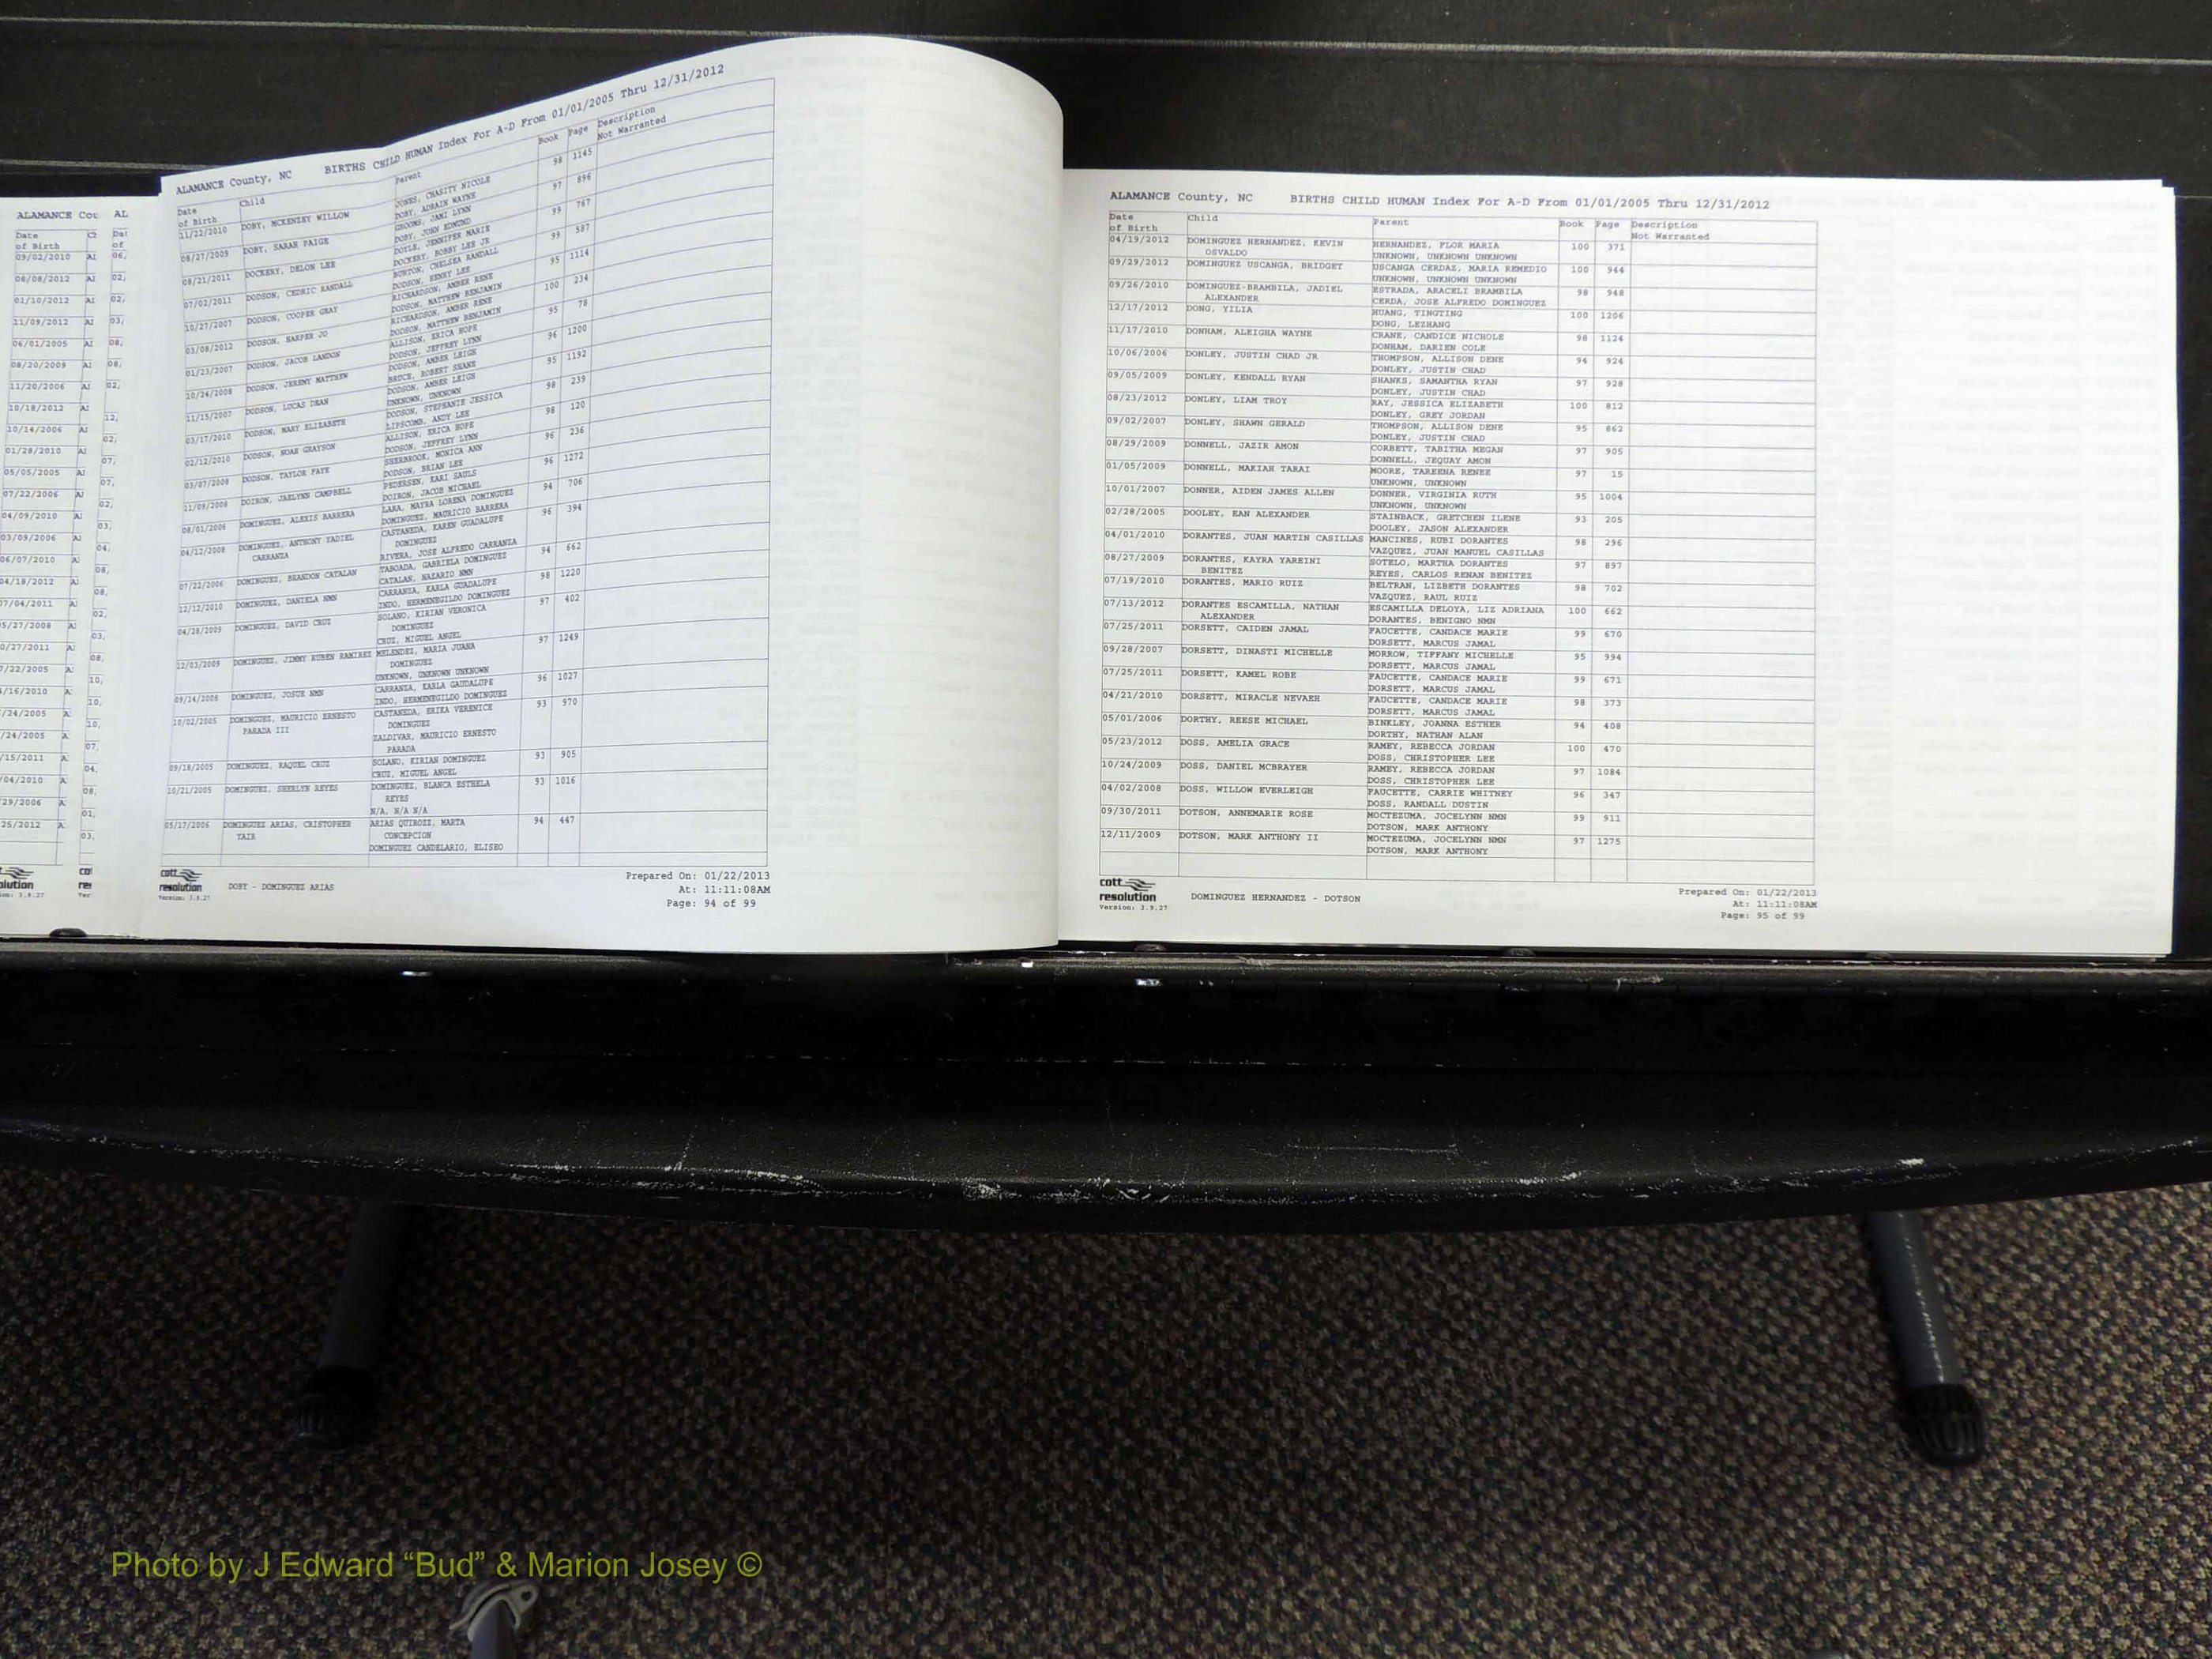 ALAMANCE County, NC BIRTHS CHILD HUMAN Index For A-D From 01/01/2005 Thru 12/31/2012
Date of Birth Child Parent Book Page Description Not Warranted
11/22/2010 DOBY, MCKENZEY WILLOW JONES, CHASITY NICOLE 98 1145
DOBY, ADRAIN WAYNE
08/27/2009 DOBY, SARAH PAIGE GROOMS, JAMI LYNN 97 896
DOBY, JOHN EDMUND
08/21/2011 DOCKERY, DELON LEE DOYLE, JENNIFER MARIE 99 767
DOCKERY, BOBBY LEE JR
07/02/2011 DODSON, CEDRIC RANDALL BURTON, CHELSEA RANDALL 99 587
DODSON, HENRY LEE
10/27/2007 DODSON, COOPER GRAY RICHARDSON, AMBER RENE 95 1114
DODSON, MATTHEW BENJAMIN
03/08/2012 DODSON, HARPER JO RICHARDSON, AMBER RENE 100 234
DODSON, MATTHEW BENJAMIN
01/23/2007 DODSON, JACOB LANDON ALLISON, ERICA HOPE 95 78
DODSON, JEFFREY LYNN
10/24/2008 DODSON, JEREMY MATTHEW DODSON, AMBER LEIGH 96 1200
BRUCE, ROBERT SHANE
11/15/2007 DODSON, LUCAS DEAN DODSON, AMBER LEIGH 95 1192
UNKNOWN, UNKNOWN
03/17/2010 DODSON, MARY ELIZABETH DODSON, STEPHANIE JESSICA 98 239
LIPSCOMB, ANDY LEE
02/12/2010 DODSON, NOAH GRAYSON ALLISON, ERICA HOPE 98 120
DODSON, JEFFREY LYNN
03/07/2008 DODSON, TAYLOR FAYE SHERBROOK, MONICA ANN 96 236
DODSON, BRIAN LEE
11/09/2008 DOIRON, JAELYNN CAMPBELL PEDERSEN, KARI SAULS 96 1272
DOIRON, JACOB MICHAEL
08/01/2006 DOMINGUEZ, ALEXIS BARRERA LARA, MAYRA LORENA DOMINGUEZ 94 706
DOMINGUEZ, MAURICIO BARRERA
04/12/2008 DOMINGUEZ, ANTHONY YADIEL CARRANZA CASTANEDA, KAREN GUADALUPE DOMINGUEZ 96 394
RIVERA, JOSE ALFREDO CARRANZA
07/22/2006 DOMINGUEZ, BRANDON CATALAN TABOADA, GABRIELA DOMINGUEZ 94 662
CATALAN, NAZARIO NMN
12/12/2010 DOMINGUEZ, DANIELA NMN CARRANZA, KARLA GUADALUPE 98 1220
INDO, HERMENEGILDO DOMINGUEZ
04/28/2009 DOMINGUEZ, DAVID CRUZ SOLANO, KIRIAN VERONICA DOMINGUEZ 97 402
CRUZ, MIGUEL ANGEL
12/03/2009 DOMINGUEZ, JIMMY RUBEN RAMIREZ MELENDEZ, MARIA JUANA DOMINGUEZ 97 1249
UNKNOWN, UNKNOWN UNKNOWN
09/14/2008 DOMINGUEZ, JOSUE NMN CARRANZA, KARLA GAUDALUPE 96 1027
INDO, HERMENEGILDO DOMINGUEZ
10/02/2005 DOMINGUEZ, MAURICIO ERNESTO PARADA III CASTANEDA, ERIKA VERENICE DOMINGUEZ 93 970
ZALDIVAR, MAURICIO ERNESTO PARADA
09/18/2005 DOMINGUEZ, RAQUEL CRUZ SOLANO, KIRIAN DOMINGUEZ 93 905
CRUZ, MIGUEL ANGEL
10/21/2005 DOMINGUEZ, SHERLYN REYES DOMINGUEZ, BLANCA ESTHELA REYES 93 1016
N/A, N/A N/A
05/17/2006 DOMINGUEZ ARIAS, CRISTOPHER YAIR ARIAS QUIROZZ, MARTA CONCEPCION 94 447
DOMINGUEZ CANDELARIO, ELISEO
cott resolution Version: 3.9.27
DOBY - DOMINGUEZ ARIAS
Prepared On: 01/22/2013
At: 11:11:08AM
Page: 94 of 99
ALAMANCE County, NC BIRTHS CHILD HUMAN Index For A-D From 01/01/2005 Thru 12/31/2012
Date of Birth Child Parent Book Page Description Not Warranted
04/19/2012 DOMINGUEZ HERNANDEZ, KEVIN OSVALDO HERNANDEZ, FLOR MARIA 100 371
UNKNOWN, UNKNOWN UNKNOWN
09/29/2012 DOMINGUEZ USCANGA, BRIDGET USCANGA CERDAZ, MARIA REMEDIO 100 944
UNKNOWN, UNKNOWN UNKNOWN
09/26/2010 DOMINGUEZ-BRAMBILA, JADIEL ALEXANDER ESTRADA, ARACELI BRAMBILA 98 948
CERDA, JOSE ALFREDO DOMINGUEZ
12/17/2012 DONG, YILIA HUANG, TINGTING 100 1206
DONG, LEZHANG
11/17/2010 DONHAM, ALEIGHA WAYNE CRANE, CANDICE NICHOLE 98 1124
DONHAM, DARIEN COLE
10/06/2006 DONLEY, JUSTIN CHAD JR THOMPSON, ALLISON DENE 94 924
DONLEY, JUSTIN CHAD
09/05/2009 DONLEY, KENDALL RYAN SHANKS, SAMANTHA RYAN 97 928
DONLEY, JUSTIN CHAD
08/23/2012 DONLEY, LIAM TROY RAY, JESSICA ELIZABETH 100 812
DONLEY, GREY JORDAN
09/02/2007 DONLEY, SHAWN GERALD THOMPSON, ALLISON DENE 95 862
DONLEY, JUSTIN CHAD
08/29/2009 DONNELL, JAZIR AMON CORBETT, TABITHA MEGAN 97 905
DONNELL, JEQUAY AMON
01/05/2009 DONNELL, MAKIAH TARAI MOORE, TAREENA RENEE 97 15
UNKNOWN, UNKNOWN
10/01/2007 DONNER, AIDEN JAMES ALLEN DONNER, VIRGINIA RUTH 95 1004
UNKNOWN, UNKNOWN
02/28/2005 DOOLEY, EAN ALEXANDER STAINBACK, GRETCHEN ILENE 93 205
DOOLEY, JASON ALEXANDER
04/01/2010 DORANTES, JUAN MARTIN CASILLAS MANCINES, RUBI DORANTES 98 296
VAZQUEZ, JUAN MANUEL CASILLAS
08/27/2009 DORANTES, KAYRA YAREINI BENITEZ SOTELO, MARTHA DORANTES 97 897
REYES, CARLOS RENAN BENITEZ
07/19/2010 DORANTES, MARIO RUIZ BELTRAN, LIZBETH DORANTES 98 702
VAZQUEZ, RAUL RUIZ
07/13/2012 DORANTES ESCAMILLA, NATHAN ALEXANDER ESCAMILLA DELOYA, LIZ ADRIANA 100 662
DORANTES, BENIGNO NMN
07/25/2011 DORSETT, CAIDEN JAMAL FAUCETTE, CANDACE MARIE 99 670
DORSETT, MARCUS JAMAL
09/28/2007 DORSETT, DINASTI MICHELLE MORROW, TIFFANY MICHELLE 95 994
DORSETT, MARCUS JAMAL
07/25/2011 DORSETT, KAMEL ROBE FAUCETTE, CANDACE MARIE 99 671
DORSETT, MARCUS JAMAL
04/21/2010 DORSETT, MIRACLE NEVAEH FAUCETTE, CANDACE MARIE 98 373
DORSETT, MARCUS JAMAL
05/01/2006 DORTHY, REESE MICHAEL BINKLEY, JOANNA ESTHER 94 408
DORTHY, NATHAN ALAN
05/23/2012 DOSS, AMELIA GRACE RAMEY, REBECCA JORDAN 100 470
DOSS, CHRISTOPHER LEE
10/24/2009 DOSS, DANIEL MCBRAYER RAMEY, REBECCA JORDAN 97 1084
DOSS, CHRISTOPHER LEE
04/02/2008 DOSS, WILLOW EVERLEIGH FAUCETTE, CARRIE WHITNEY 96 347
DOSS, RANDALL DUSTIN
09/30/2011 DOTSON, ANNEMARIE ROSE MOCTEZUMA, JOCELYNN NMN 99 911
DOTSON, MARK ANTHONY
12/11/2009 DOTSON, MARK ANTHONY II MOCTEZUMA, JOCELYNN NMN 97 1275
DOTSON, MARK ANTHONY
cott resolution Version: 3.9.27
DOMINGUEZ HERNANDEZ - DOTSON
Prepared On: 01/22/2013
At: 11:11:08AM
Page: 95 of 99
Photo by J Edward “Bud” & Marion Josey ©